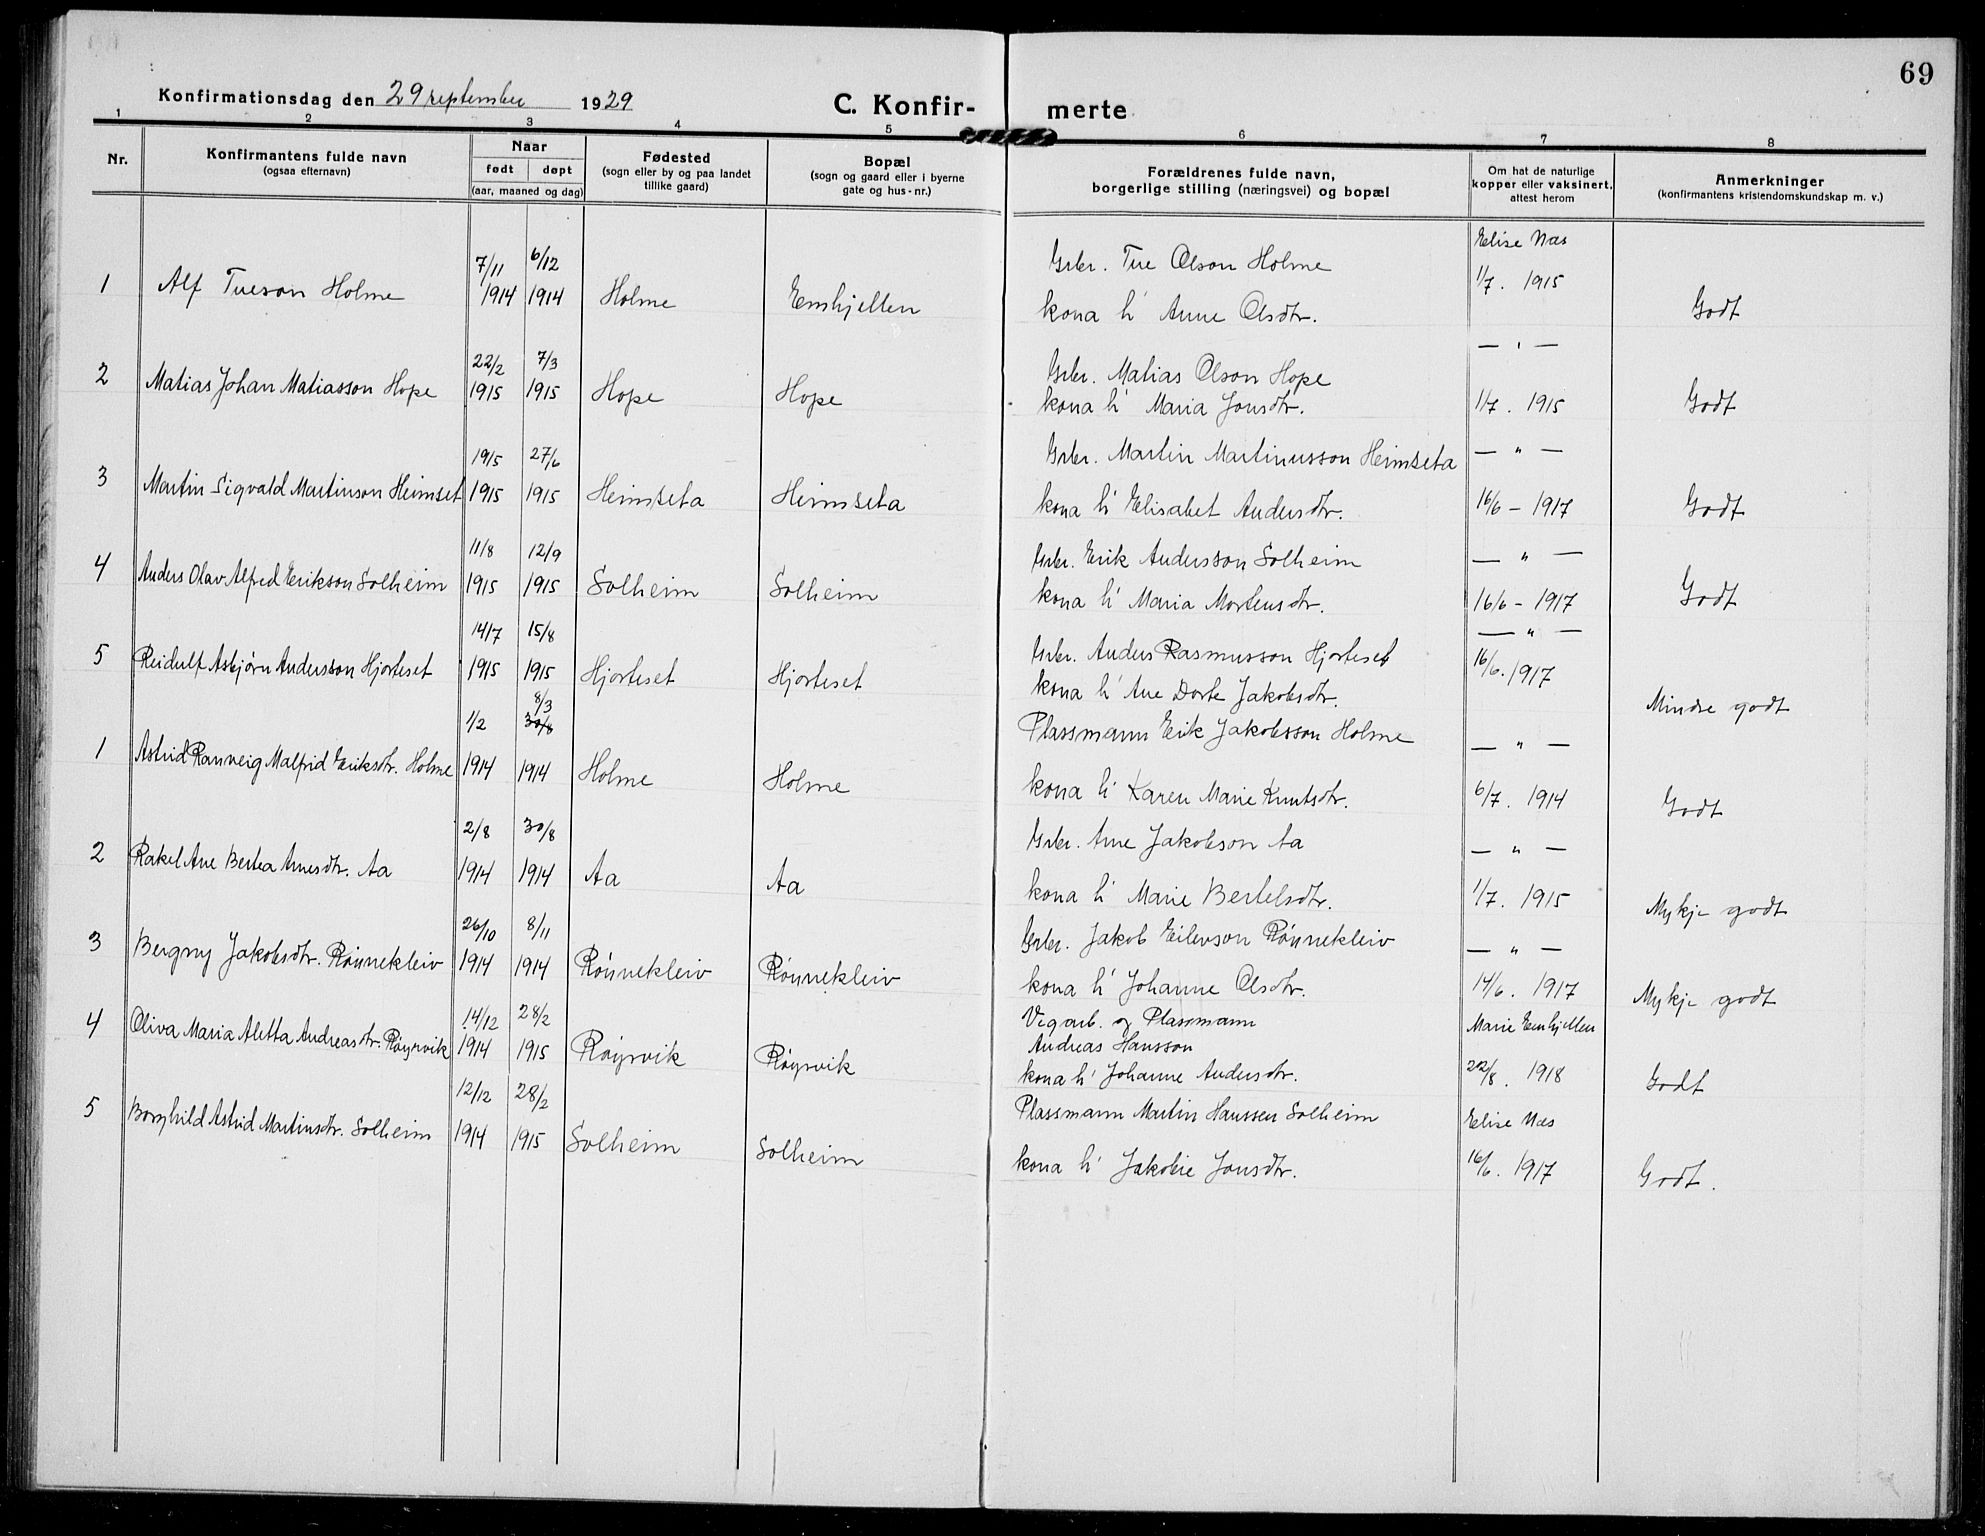 69
Konfirmationsdag den 29 september 1929
C. Konfir- merte
1 2 3 4 5 6 7 8
Nr.
Konfirmantens fulde navn
(ogsaa efternavn)
Naar
født døpt
(aar, maaned og dag)
Fødested
(sogn eller by og paa landet
tillike gaard)
Bopæl
(sogn og gaard eller i byerne
gate og hus-nr.)
Forældrenes fulde navn,
borgerlige stilling (næringsvei) og bopæl
Om hat de naturlige
kopper eller vaksinert,
attest herom
Anmerkninger
(konfirmantens kristendomskundskap m. v.)
7/11 6/12 Grbr. Tue Olson Holme Elise Næs
1 Alf Tueson Holme 1914 1914 Holme Emhjellen kona h' Anne Olsdtr. 1/7. 1915 Godt
22/2 7/3 Grbr. Matias Olson Hope — " —
2 Matias Johan Matiasson Hope 1915 1915 Hope Hope kona h' Maria Jonsdtr. 1/7. 1915 Godt
19/5 27/6 Grbr. Martin Martinusson Heimseta — " —
3 Martin Sigvald Martinson Heimset 1915 1915 Heimseta Heimseta kona h' Elisabet Andersdtr. 16/6 - 1917 Godt
11/8 12/9 Grbr. Erik Andersson Solheim — " —
4 Anders Olav Alfred Erikson Solheim 1915 1915 Solheim Solheim kona h' Maria Mortensdtr. 16/6 - 1917 Godt
14/7 15/8 Grbr. Anders Rasmusson Hjorteset — " —
5 Reidulf Asbjørn Andersson Hjorteset 1915 1915 Hjorteset Hjorteset kona h' Ane Dorte Jakobsdtr. 16/6. 1917 Mindre godt
8/3
1/2 30/8 Plassmann Erik Jakobsson Holme — " —
1 Astrid Ranveig Malfrid Eriksdtr. Holme 1914 1914 Holme Holme kona h' Karen Marie Knutsdtr. 6/7. 1914 Godt
2/8 30/8 Grbr. Arne Jakobson Aa — " —
2 Rakel Ane Bertea Arnesdtr. Aa 1914 1914 Aa Aa kona h' Marie Bertelsdtr. 1/7. 1915 Mykje godt
26/10 8/11 Grbr. Jakob Eilevson Rønnekleiv — " —
3 Bergny Jakobsdtr. Rønnekleiv 1914 1914 Rønnekleiv Rønnekleiv kona h' Johanne Olsdtr. 14/6. 1917 Mykje godt
14/12 28/2 Vegarb. og Plassmann Marie Emhjellen
Andreas Hansson
4 Oliva Maria Aletta Andreasdtr. Røyrvik 1914 1915 Røyrvik Røyrvik kona h' Johanne Andersdtr. 22/8. 1918 Godt
12/12 28/2 Plassmann Martin Hanssen Solheim Elise Næs
5 Borghild Astrid Martinsdtr. Solheim 1914 1915 Solheim Solheim kona h' Jakobie Jonsdtr. 16/6. 1917 Godt.